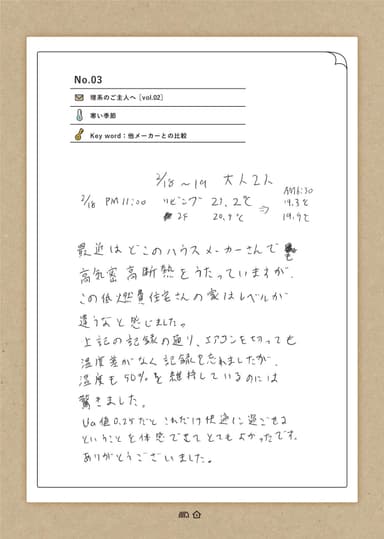 No.03
理系のご主人へ [vol.02]
寒い季節
Key word：他メーカーとの比較
2/18 ～19 大人2人
AM6:30
2/18 PM11:00 リビング 21.2℃ ⇒ 19.3℃
2F 20.9℃ 19.9℃
最近はどこのハウスメーカーさんでも
高気密高断熱をうたっていますが、
この低燃費住宅さんの家はレベルが
違うなと感じました。
上記の記録の通り、エアコンを切っても
温度差がなく記録を忘れましたが、
湿度も50%を維持しているのには
驚きました。
Ua値0.25だとこれだけ快適に過ごせる
ということを体感できてとてもよかったです。
ありがとうございました。